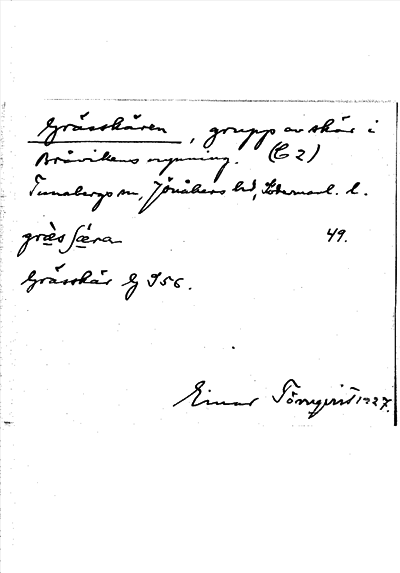 Grässkären, grupp av skär i
Bråvikens mynning. (C 2)
Tunabergs sn, Jönåkers hd, Södermanl. l.
græ̀s ʃæra 49.
Grässkär G S56.
Einar Törnqvist 1927.